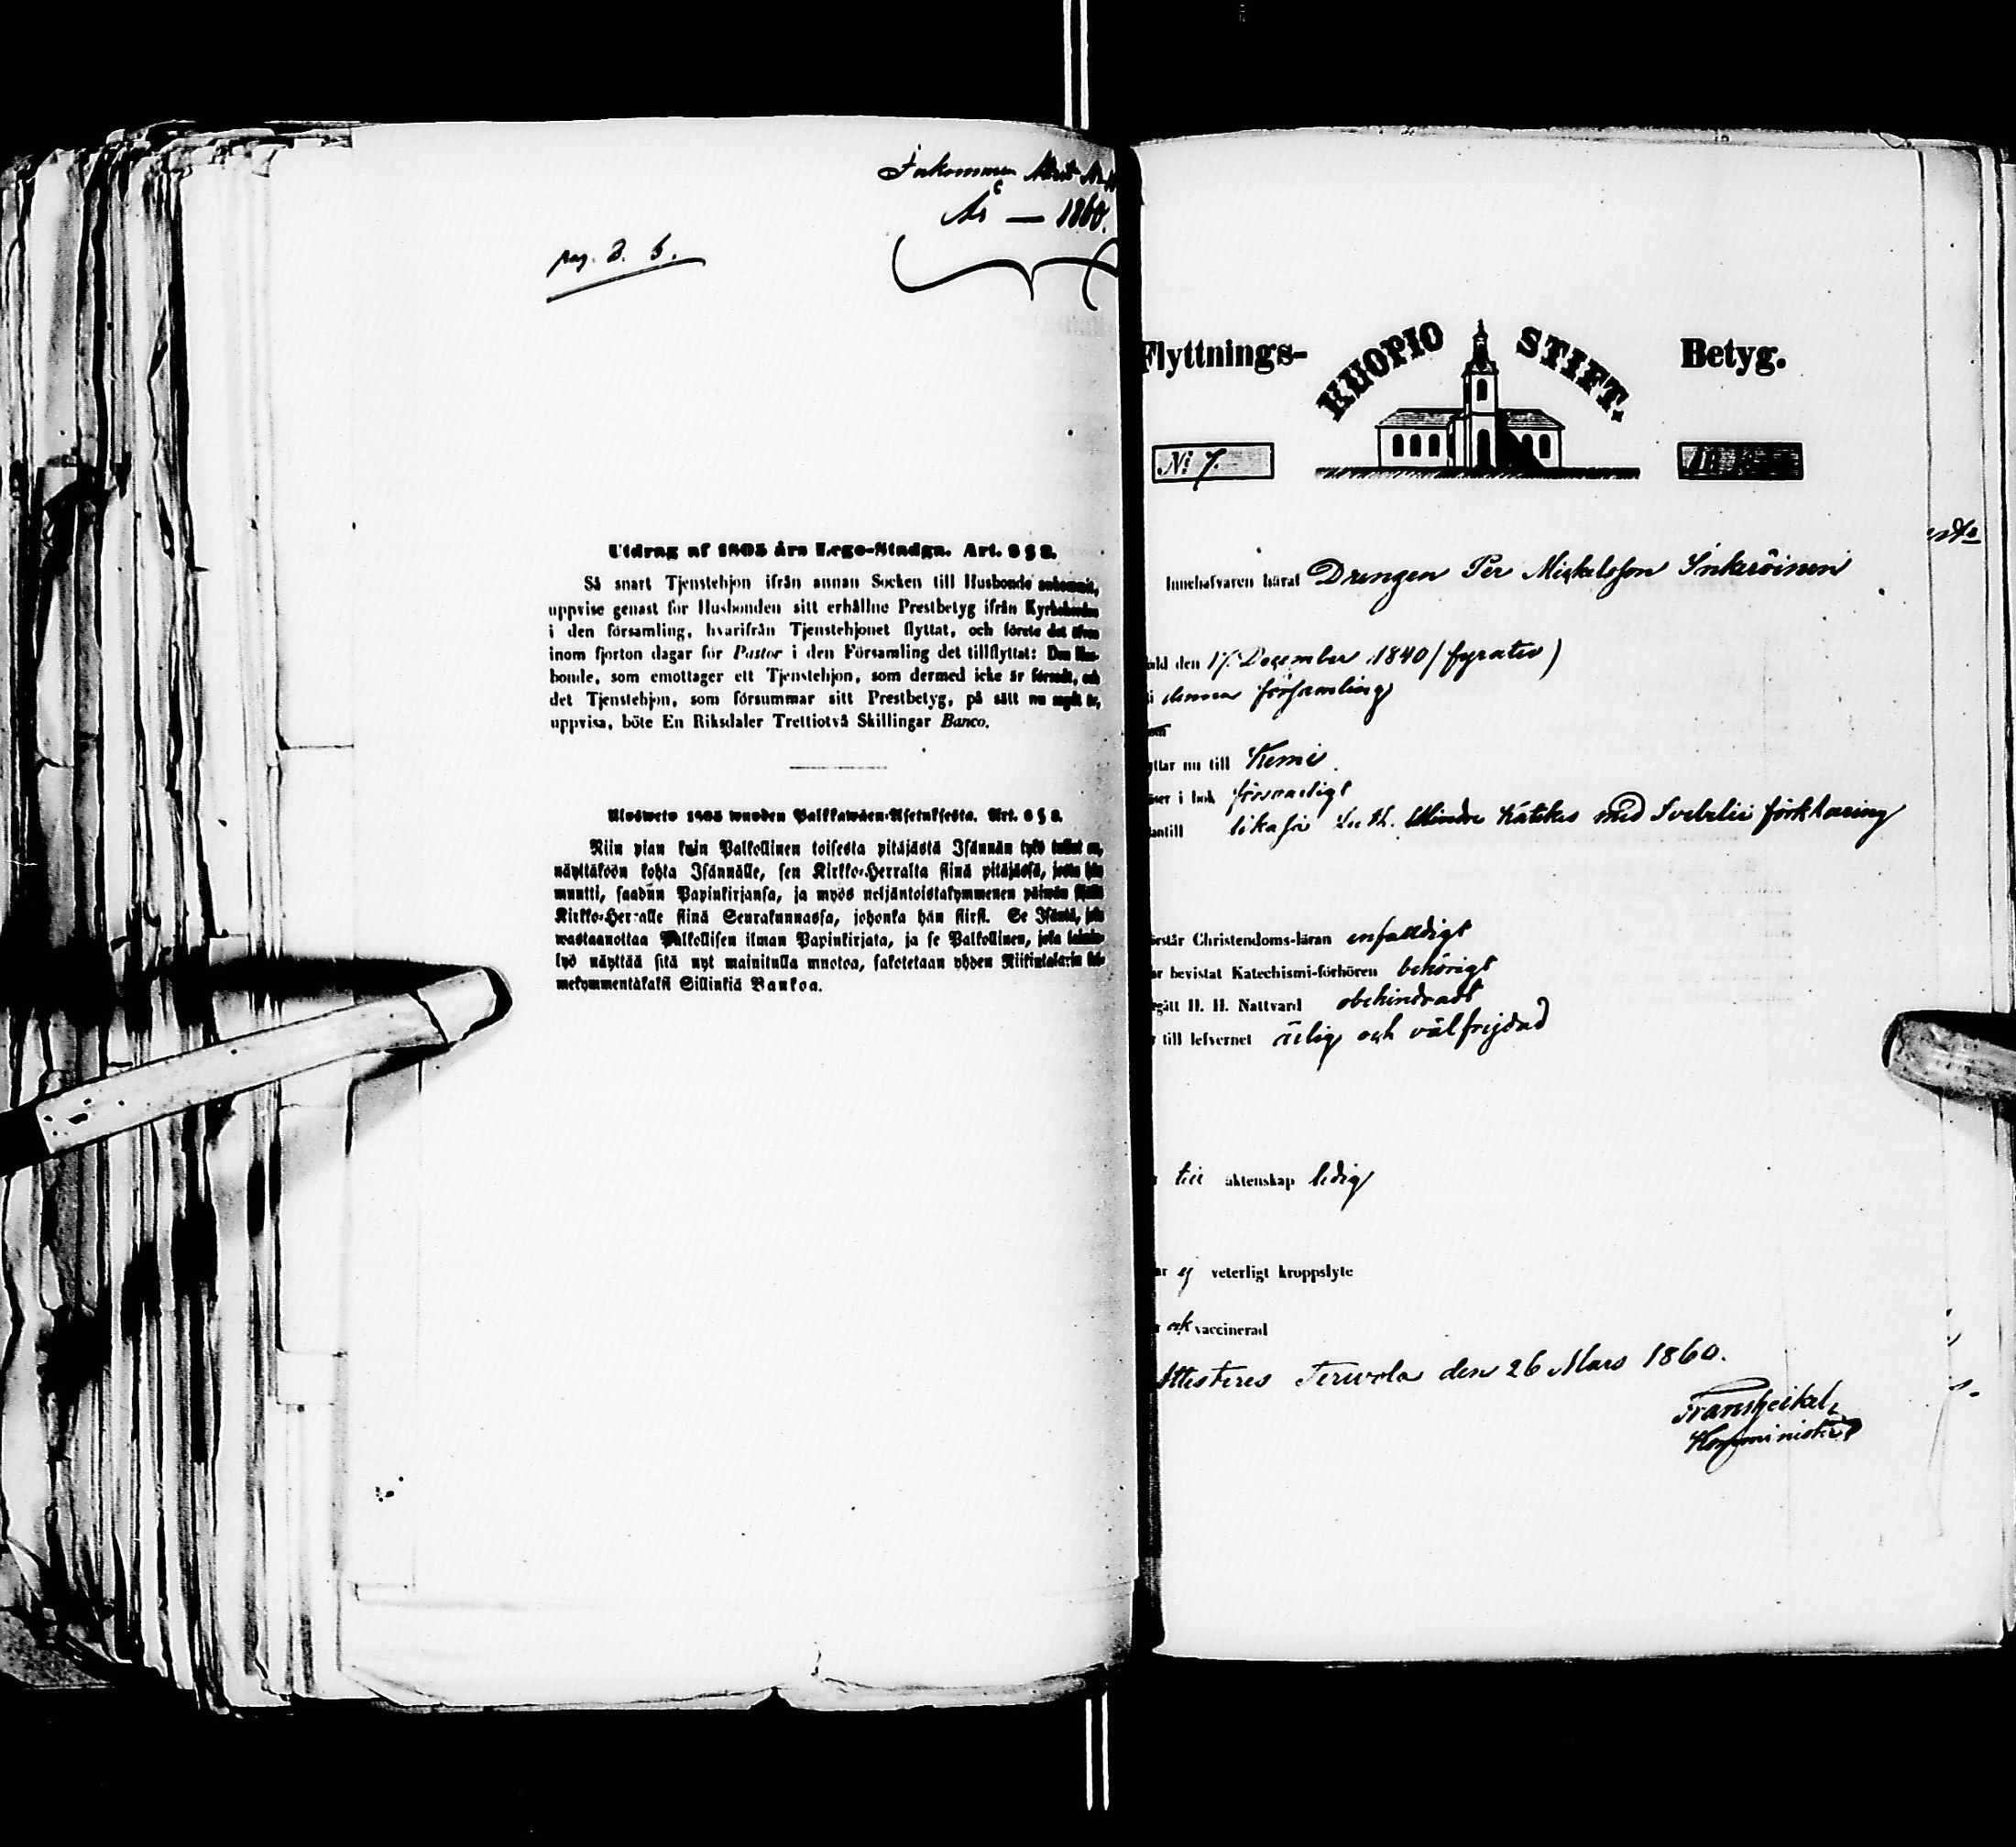 Inkommen
År — 1860.
pag. 3. 5.
Utdrag af 1805 års Lego-Stadga. Art. 8 § 8.
Så snart Tjenstehjon ifrån annan Socken till Husbonde ankommit,
uppvise genast for Husbonden sitt erhållne Prestbetyg ifrån Kyrkoherden
i den församling, hvarifrån Tjenstehjonet flyttat, och förete det äfven
inom fjorton dagar för Pastor i den Församling det tillflyttat: Den Hus-
bonde, som emottager ett Tjenstehjon, som dermed icke är försedt, och
det Tjenstehjon, som försummar sitt Prestbetyg, på sätt nu sagdt är,
uppvisa, böte En Riksdaler Trettiotvå Skillingar Banco.
Ulosweto 1805 wuoden Palkkawäen-Asetuksesta. Art. 8 § 8.
Niin pian kuin Palkollinen toisesta pitäjästä Isännän tykö tullut on,
näyttäköön kohta Isännälle, sen Kirkko-Herralta siinä pitäjässä, josta hän
muutti, saadun Papinkirjansa, ja myös neljäntoistakymmenen päiwän
Kirkko-Herralle siinä Seurakunnassa, johonka hän siirsi. Se Isäntä, joka
wastaanottaa Palkollisen ilman Papinkirjata, ja se Palkollinen, joka
lyö näyttää sitä nyt mainitulla muotoa, sakotetaan yhden Riikintalarin kol-
mekymmentäkaksi Sillinkiä Bankoa.
Flyttnings- KUOPIO STIFT. Betyg.
N: 7.
Innehafvaren häraf Drengen Per Mickelsson Inkeröinen
född den 17. December 1840 (fyratio)
i denna församling
som
flyttar nu till Kemi
läser i bok försvarligt
utantill likaså Luth. Mindre Katekes med Svebelii förklaring
förstår Christendoms-läran enfaldigt
har bevistat Katechismi-förhören behörigt
begått H. H. Nattvard obehindradt
är till lefvernet ärlig och välfrejdad
är till äktenskap ledig
har ej veterligt kroppslyte
är ock vaccinerad
Attesteres Tervola den 26 Mars 1860.
Frans Heikel,
Komminister